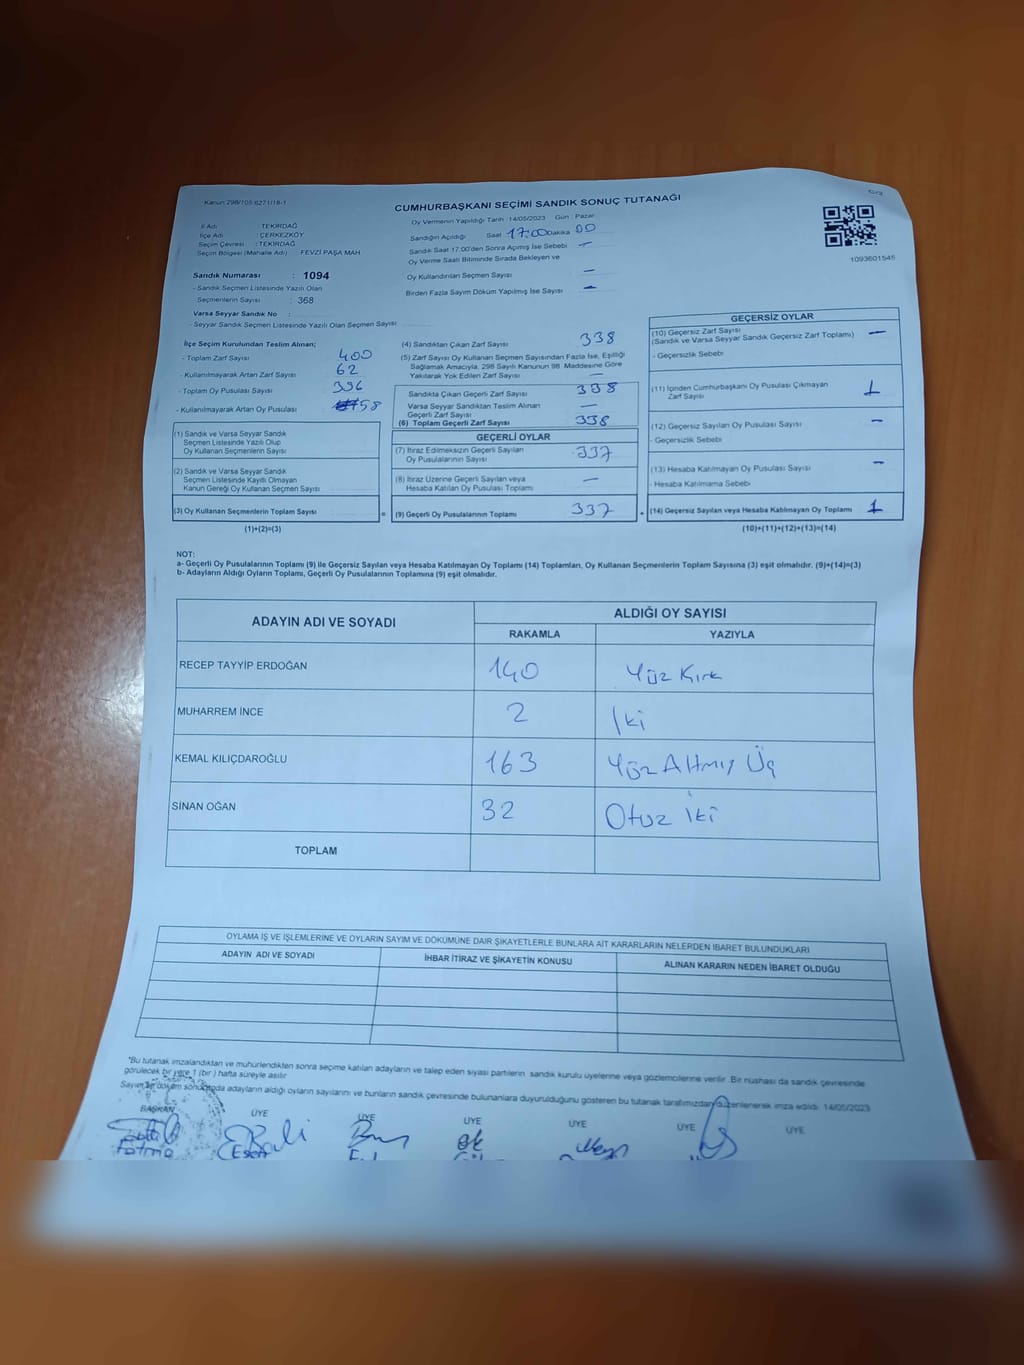 Kanun:298/105 6271/18-1
CUMHURBAŞKANI SEÇİMİ SANDIK SONUÇ TUTANAĞI
İl Adı : TEKİRDAĞ
İlçe Adı : ÇERKEZKÖY
Seçim Çevresi : TEKİRDAĞ
Seçim Bölgesi (Mahalle Adı) : FEVZİ PAŞA MAH
Sandık Numarası : 1094
- Sandık Seçmen Listesinde Yazılı Olan
Seçmenlerin Sayısı : 368
Varsa Seyyar Sandık No :
- Seyyar Sandık Seçmen Listesinde Yazılı Olan Seçmen Sayısı
Oy Vermenin Yapıldığı Tarih :14/05/2023 Gün : Pazar
Sandığın Açıldığı Saat 17:00 Dakika 00
Sandık Saat 17.00'den Sonra Açımış İse Sebebi —
Oy Verme Saati Bitiminde Sırada Bekleyen ve
Oy Kullandırılan Seçmen Sayısı —
Birden Fazla Sayım Döküm Yapılmış İse Sayısı —
1093601545
İlçe Seçim Kurulundan Teslim Alınan;
- Toplam Zarf Sayısı 400
- Kullanılmayarak Artan Zarf Sayısı 62
- Toplam Oy Pusulası Sayısı 396
- Kullanılmayarak Artan Oy Pusulası 58
(1) Sandık ve Varsa Seyyar Sandık
Seçmen Listesinde Yazılı Olup
Oy Kullanan Seçmenlerin Sayısı
(2) Sandık ve Varsa Seyyar Sandık
Seçmen Listesinde Kayıtlı Olmayan
Kanun Gereği Oy Kullanan Seçmen Sayısı
(3) Oy Kullanan Seçmenlerin Toplam Sayısı =
(1)+(2)=(3)
(4) Sandıktan Çıkan Zarf Sayısı 338
(5) Zarf Sayısı Oy Kullanan Seçmen Sayısından Fazla İse, Eşitliği
Sağlamak Amacıyla, 298 Sayılı Kanunun 98. Maddesine Göre
Yakılarak Yok Edilen Zarf Sayısı —
Sandıkta Çıkan Geçerli Zarf Sayısı 338
Varsa Seyyar Sandıktan Teslim Alınan
Geçerli Zarf Sayısı —
(6) Toplam Geçerli Zarf Sayısı 338
GEÇERLİ OYLAR
(7) İtiraz Edilmeksizin Geçerli Sayılan
Oy Pusulalarının Sayısı 337
(8) İtiraz Üzerine Geçerli Sayılan veya
Hesaba Katılan Oy Pusulası Toplamı —
(9) Geçerli Oy Pusulalarının Toplamı 337 +
GEÇERSİZ OYLAR
(10) Geçersiz Zarf Sayısı
(Sandık ve Varsa Seyyar Sandık Geçersiz Zarf Toplamı) —
- Geçersizlik Sebebi
(11) İçinden Cumhurbaşkanı Oy Pusulası Çıkmayan
Zarf Sayısı 1
(12) Geçersiz Sayılan Oy Pusulası Sayısı —
- Geçersizlik Sebebi
(13) Hesaba Katılmayan Oy Pusulası Sayısı —
- Hesaba Katılmama Sebebi
(14) Geçersiz Sayılan veya Hesaba Katılmayan Oy Toplamı 1
(10)+(11)+(12)+(13)=(14)
NOT:
a- Geçerli Oy Pusulalarının Toplamı (9) ile Geçersiz Sayılan veya Hesaba Katılmayan Oy Toplamı (14) Toplamları, Oy Kullanan Seçmenlerin Toplam Sayısına (3) eşit olmalıdır. (9)+(14)=(3)
b- Adayların Aldığı Oyların Toplamı, Geçerli Oy Pusulalarının Toplamına (9) eşit olmalıdır.
ADAYIN ADI VE SOYADI ALDIĞI OY SAYISI
RAKAMLA YAZIYLA
RECEP TAYYİP ERDOĞAN 140 Yüz Kırk
MUHARREM İNCE 2 İki
KEMAL KILIÇDAROĞLU 163 Yüz Altmış Üç
SİNAN OĞAN 32 Otuz İki
TOPLAM
OYLAMA İŞ VE İŞLEMLERİNE VE OYLARIN SAYIM VE DÖKÜMÜNE DAİR ŞİKAYETLERLE BUNLARA AİT KARARLARIN NELERDEN İBARET BULUNDUKLARI
ADAYIN ADI VE SOYADI İHBAR İTİRAZ VE ŞİKAYETİN KONUSU ALINAN KARARIN NEDEN İBARET OLDUĞU
*Bu tutanak imzalandıktan ve mühürlendikten sonra seçime katılan adayların ve talep eden siyasi partilerin sandık kurulu üyelerine veya gözlemcilerine verilir. Bir nüshası da sandık çevresinde
görülecek bir yere 1 (bir ) hafta süreyle asılır.
Sayım ve döküm sonucunda adayların aldığı oyların sayılarını ve bunların sandık çevresinde bulunanlara duyurulduğunu gösteren bu tutanak tarafımızdan düzenlenerek imza edildi. 14/05/2023
BAŞKAN ÜYE ÜYE ÜYE ÜYE ÜYE ÜYE
Fatma